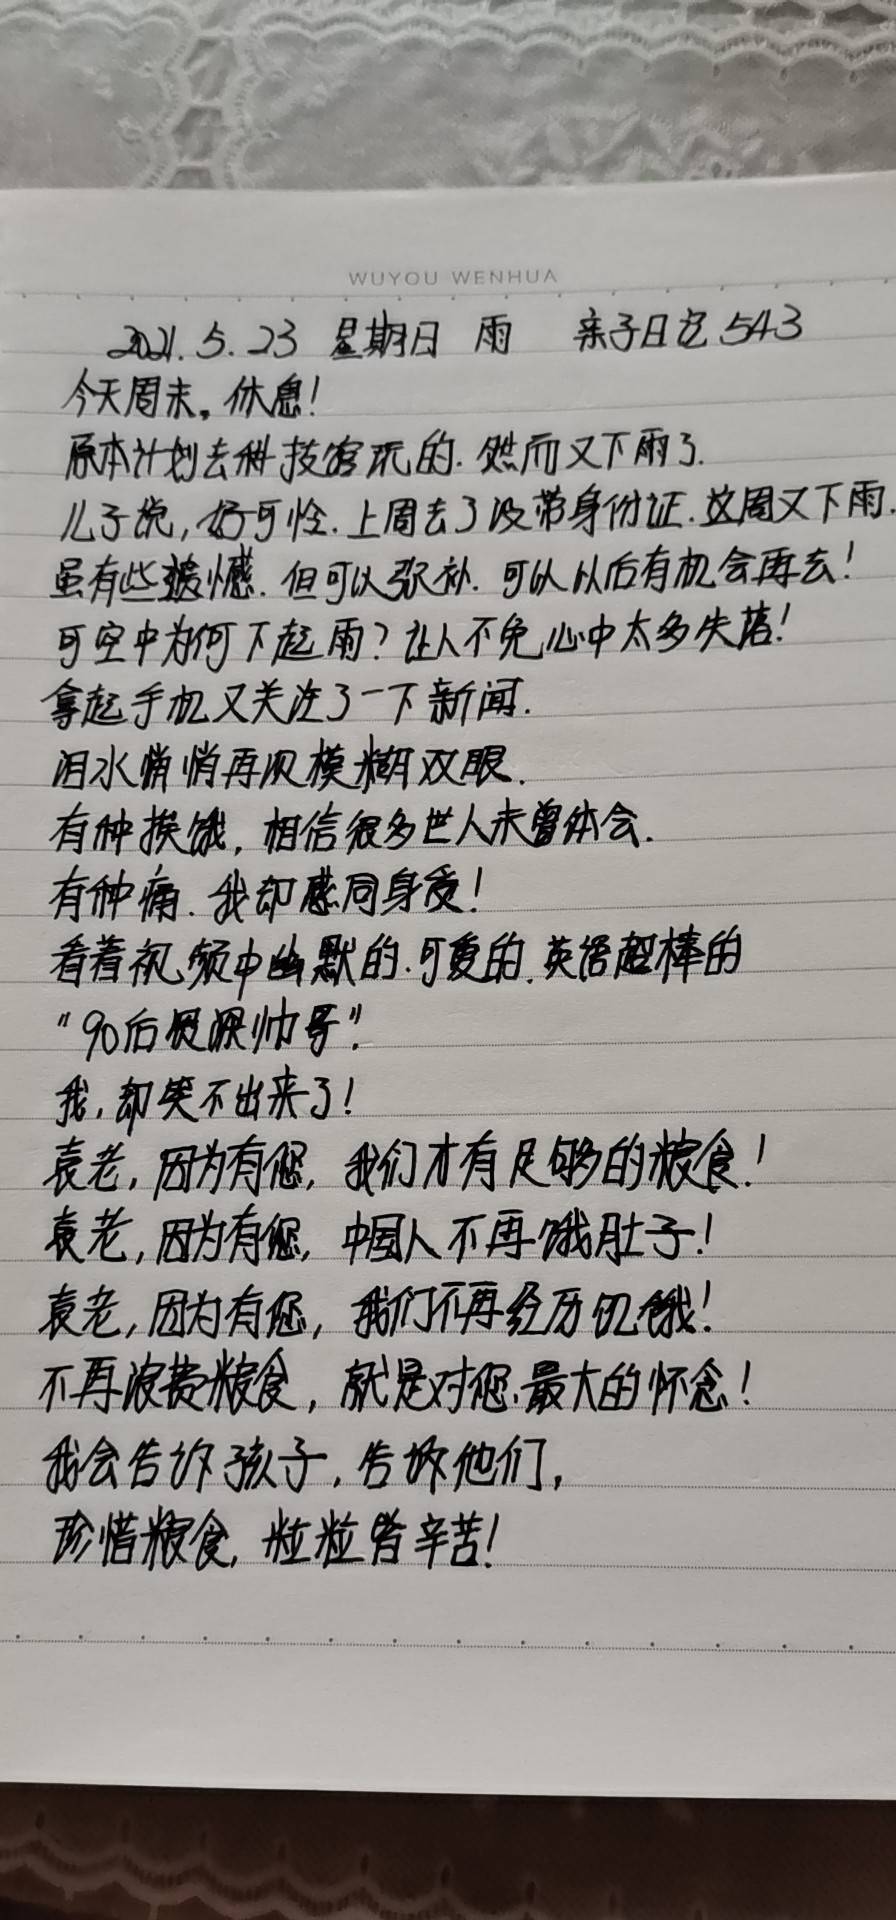 WUYOU WENHUA
2021.5.23 星期日 雨 亲子日记543
今天周末。休息!
原本计划去科技馆玩的.然而又下雨了.
儿子说,好可怜.上周去了没带身份证.这周又下雨.
虽有些遗憾.但可以弥补.可以以后有机会再去!
可空中为何下起雨?让人不免心中太多失落!
拿起手机又关注了一下新闻.
泪水悄悄再次模糊双眼.
有种挨饿,相信很多世人未曾体会.
有种痛.我却感同身受!
看着视频中幽默的.可爱的.英语超棒的
"90后资深帅哥".
我,却笑不出来了!
袁老,因为有您,我们才有足够的粮食!
袁老,因为有您,中国人不再饿肚子!
袁老,因为有您,我们不再经历饥饿!
不再浪费粮食,就是对您.最大的怀念!
我会告诉孩子,告诉他们,
珍惜粮食,粒粒皆辛苦!